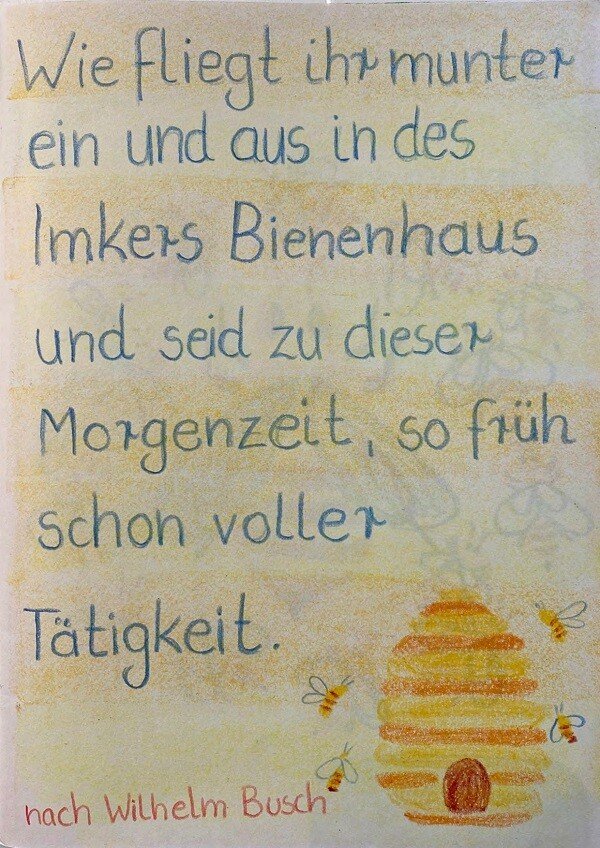 Wie fliegt ihr munter
ein und aus in des
Imkers Bienenhaus
und seid zu dieser
Morgenzeit, so früh
schon voller
Tätigkeit.
nach Wilhelm Busch